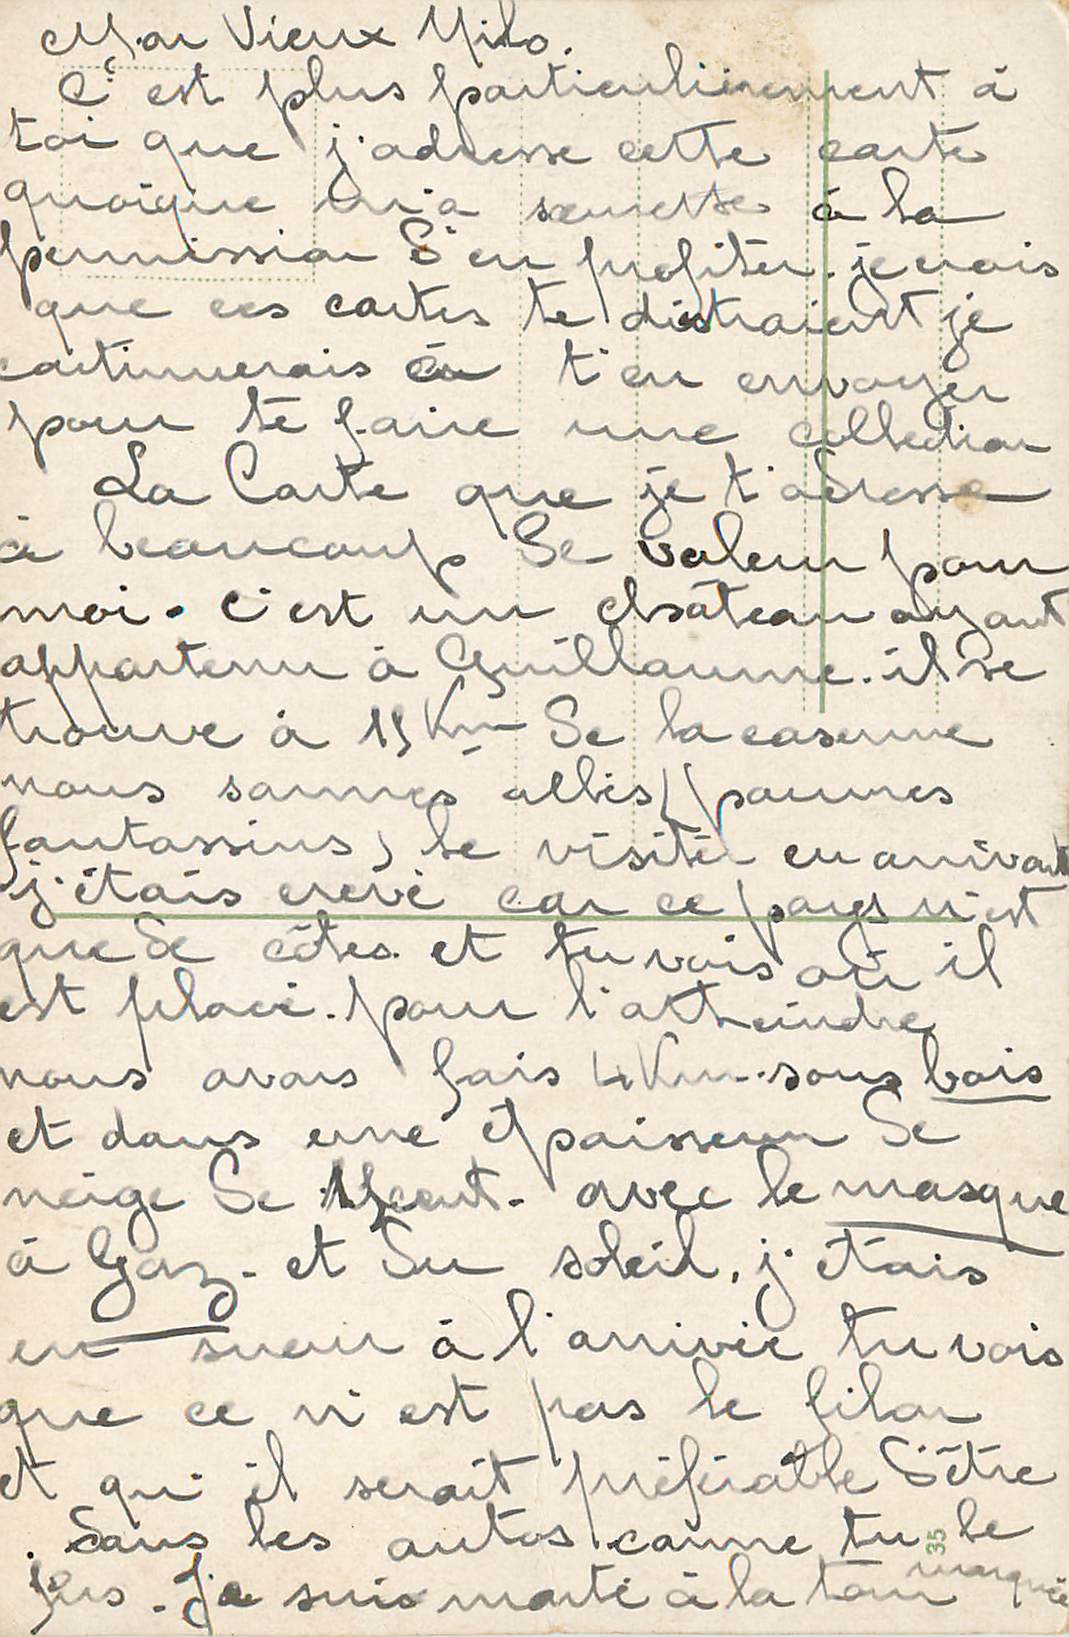 Mon Vieux Milo.
C'est plus particulièrement à
toi que j'adresse cette carte
quoique m'a à la
permission d'en profiter. je crois
que ces cartes te distraient je
continuerais à t'en envoyer
pour te faire une collection
La Carte que je t'adresse
à beaucoup de valeur pour
moi. c'est un château ayant
appartenu à Guillaume. il se
trouve à 15 Km de la caserne
nous sommes allés (pauvres
fantassins) le visiter en arrivant
j'étais crevé car ce pays n'est
que de côtes. et tu vois où il
est placé. pour l'attheindre
nous avons fais 4 Km. sous bois
et dans une épaisseur de
neige de 15cent. avec le masque
à Gaz. et du soleil. j'étais
en sueur à l'arrivée tu vois
que ce n'est pas le filon
et qu'il serait préférable d'être
dans les autos comme tu le
fus. Je suis monté à la tour marquée
35